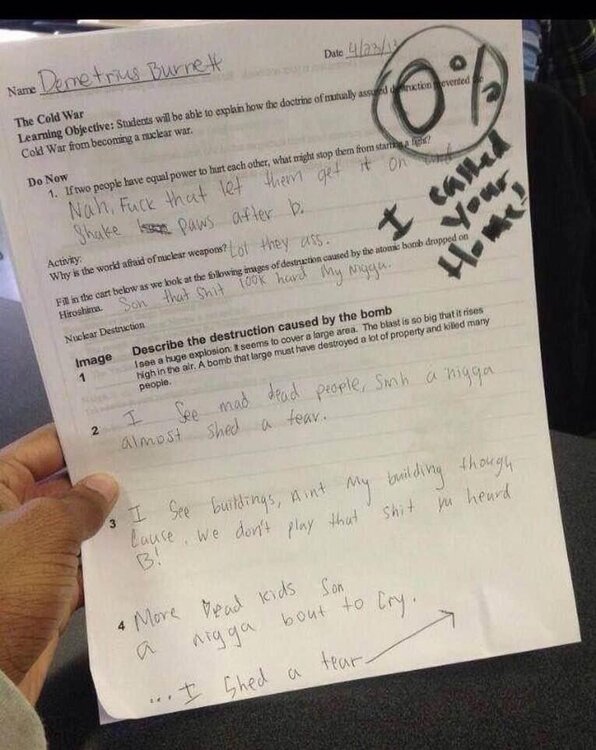 Name Demetrius Burnett
Date 4/23/13
0%
I called
your
Home!
The Cold War
Learning Objective: Students will be able to explain how the doctrine of mutually assured destruction prevented the
Cold War from becoming a nuclear war.
Do Now
1. If two people have equal power to hurt each other, what might stop them from starting a fight?
Nah, Fuck that let them get it on and
Shake paws after b.
Activity:
Why is the world afraid of nuclear weapons? Lot they ass.
Fill in the cart below as we look at the following images of destruction caused by the atomic bomb dropped on
Hiroshima. Son that shit look hard My nigga.
Nuclear Destruction
Image Describe the destruction caused by the bomb
1 I see a huge explosion. It seems to cover a large area. The blast is so big that it rises
high in the air. A bomb that large must have destroyed a lot of property and killed many
people.
2 I See mad dead people, Smh a nigga
almost shed a tear.
3 I See buildings, Aint My building though
Cause, we don't play that shit yu heard
B!
4 More Dead kids Son
a nigga bout to Cry.
... I Shed a tear